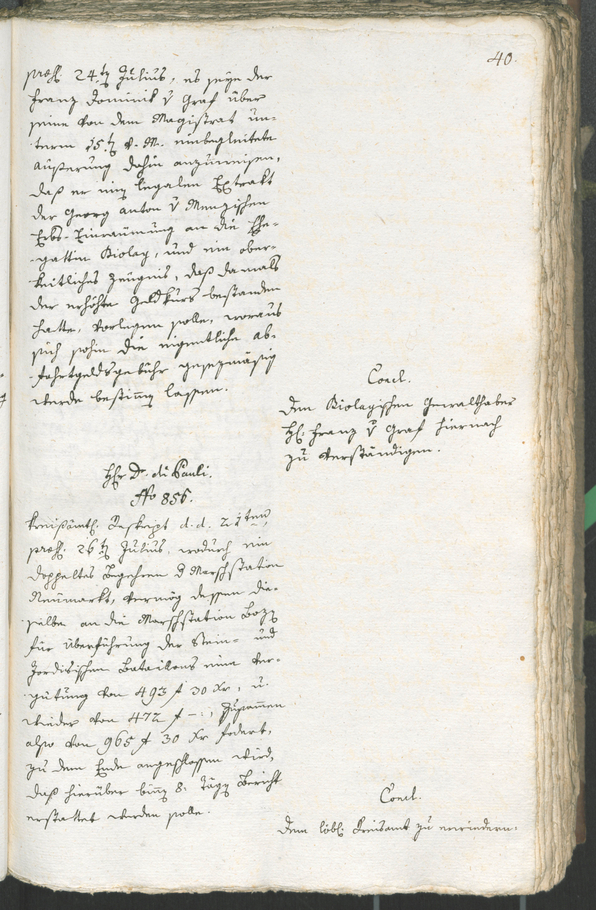 40.
præs. 24.ten Julius, es seye der
Franz Dominik v Graf über
seine von dem Magistrat un-
term 15ten v. M. einbegleitete
Äußerung dahin anzuweisen,
daß er einen legalen Extrakt
der Georg Anton v Menzischen
Erbs-Einraumung an die Ehe-
gattin Riolay, und ein ober-
keitliches Zeugnis, daß damals
der erhöhte Geldkurs bestanden
hatte, vorlegen solle, woraus
sich sohin die eigentliche ab-
fahrtgeldsgebühr gesezmäsig
werde bestimen lassen.
Concl.
Dem Riolayischen Gewalthaber
H: Franz v Graf hiernach
zu verständigen.
Hr D. di Pauli.
No 856.
Kreisämtl: Reskript d. d. 21ten,
præs. 26ten Julius, wodurch ein
doppeltes Begehren d Marschstation
Neumarkt, vermög dessen die-
selbe an die Marschstation Boz
für Überführung der Stein- und
Jordisischen Bataillons eine Ver-
gütung von 493 f 30 Xr, u.
wieder von 472 f -:, zusamen
also von 965 f 30 Xr fodert,
zu dem Ende angeschlossen wird,
daß hierüber bin 8 Tägen Bericht
erstattet werden solle.
Concl.
Dem löbl: Kreisamt zu erwiedern: